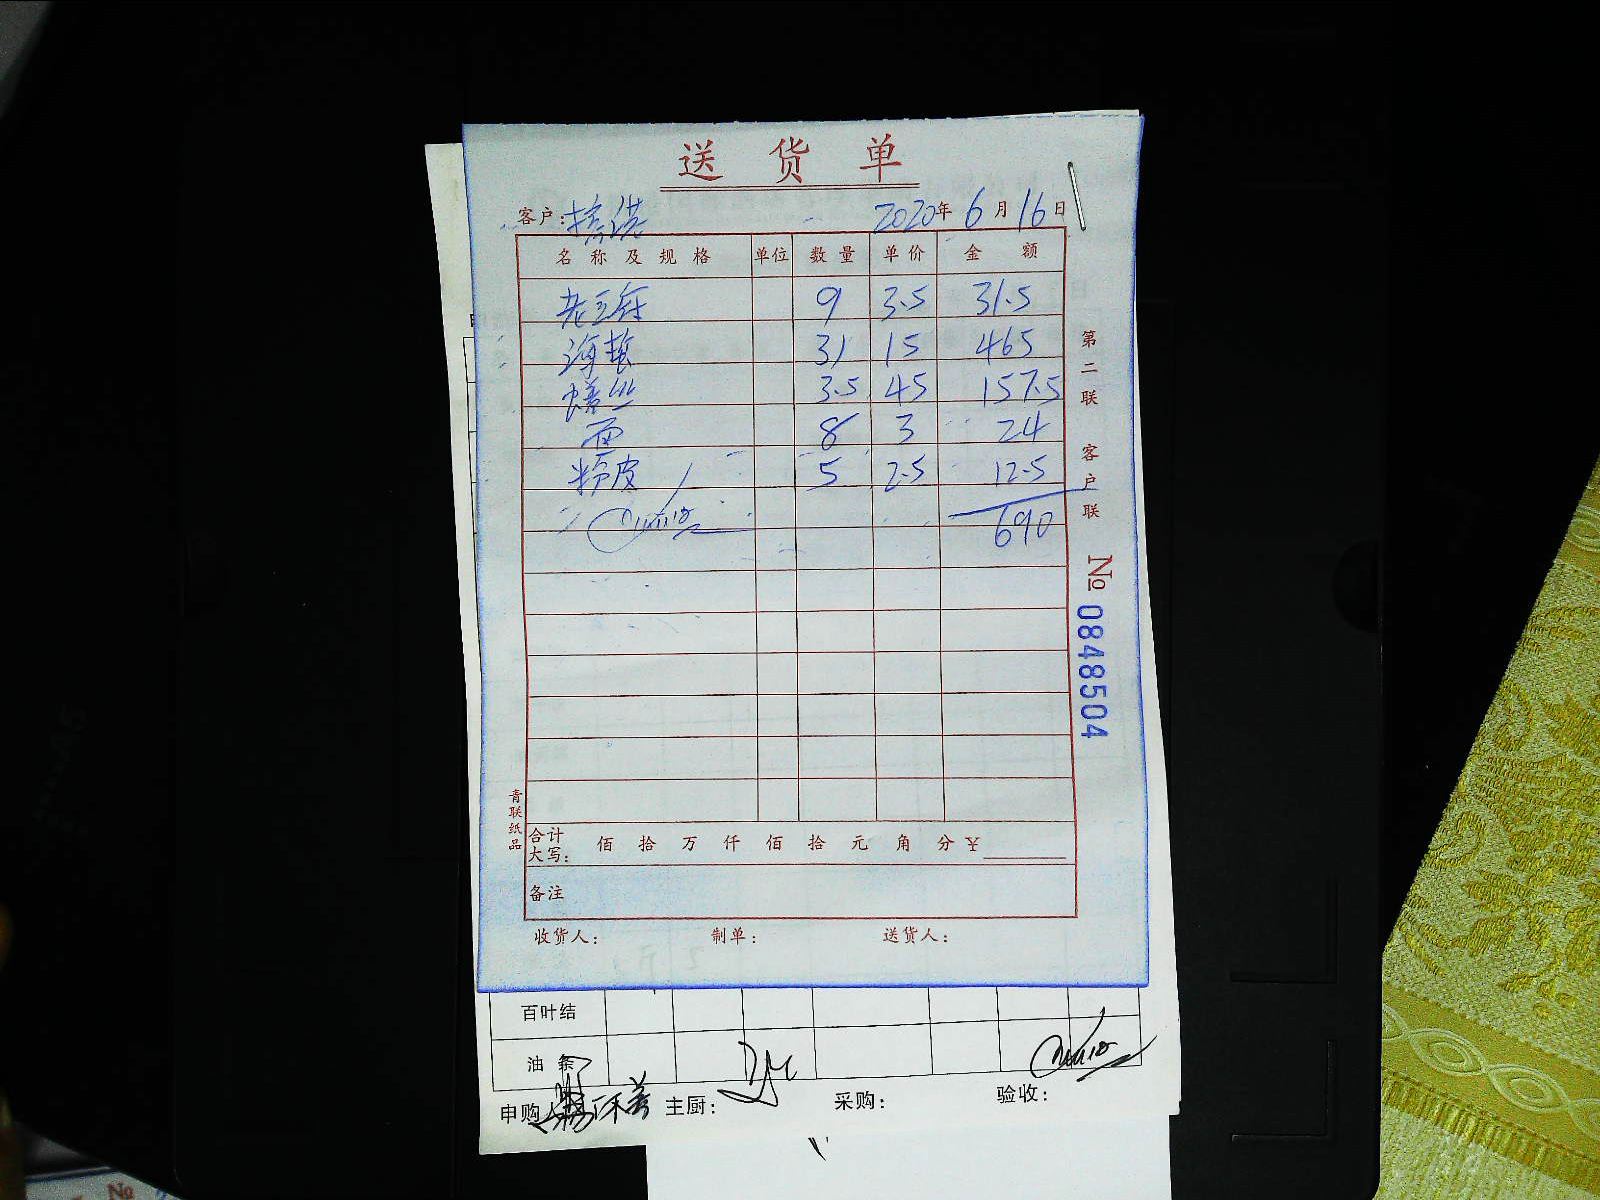 送货单
客户: 2020年6月16日
名称及规格 单位 数量 单价 金额
9 3.5 31.5
海蜇 31 15 465
3.5 45 157.5
面 8 3 24
粉皮 5 2.5 12.5
690
合计大写: 佰 拾 万 仟 佰 拾 元 角 分 ¥
备注
收货人: 制单: 送货人:
第二联 客户联
№ 0848504
青联纸品
百叶结
油条
申购 主厨: 采购: 验收:
№